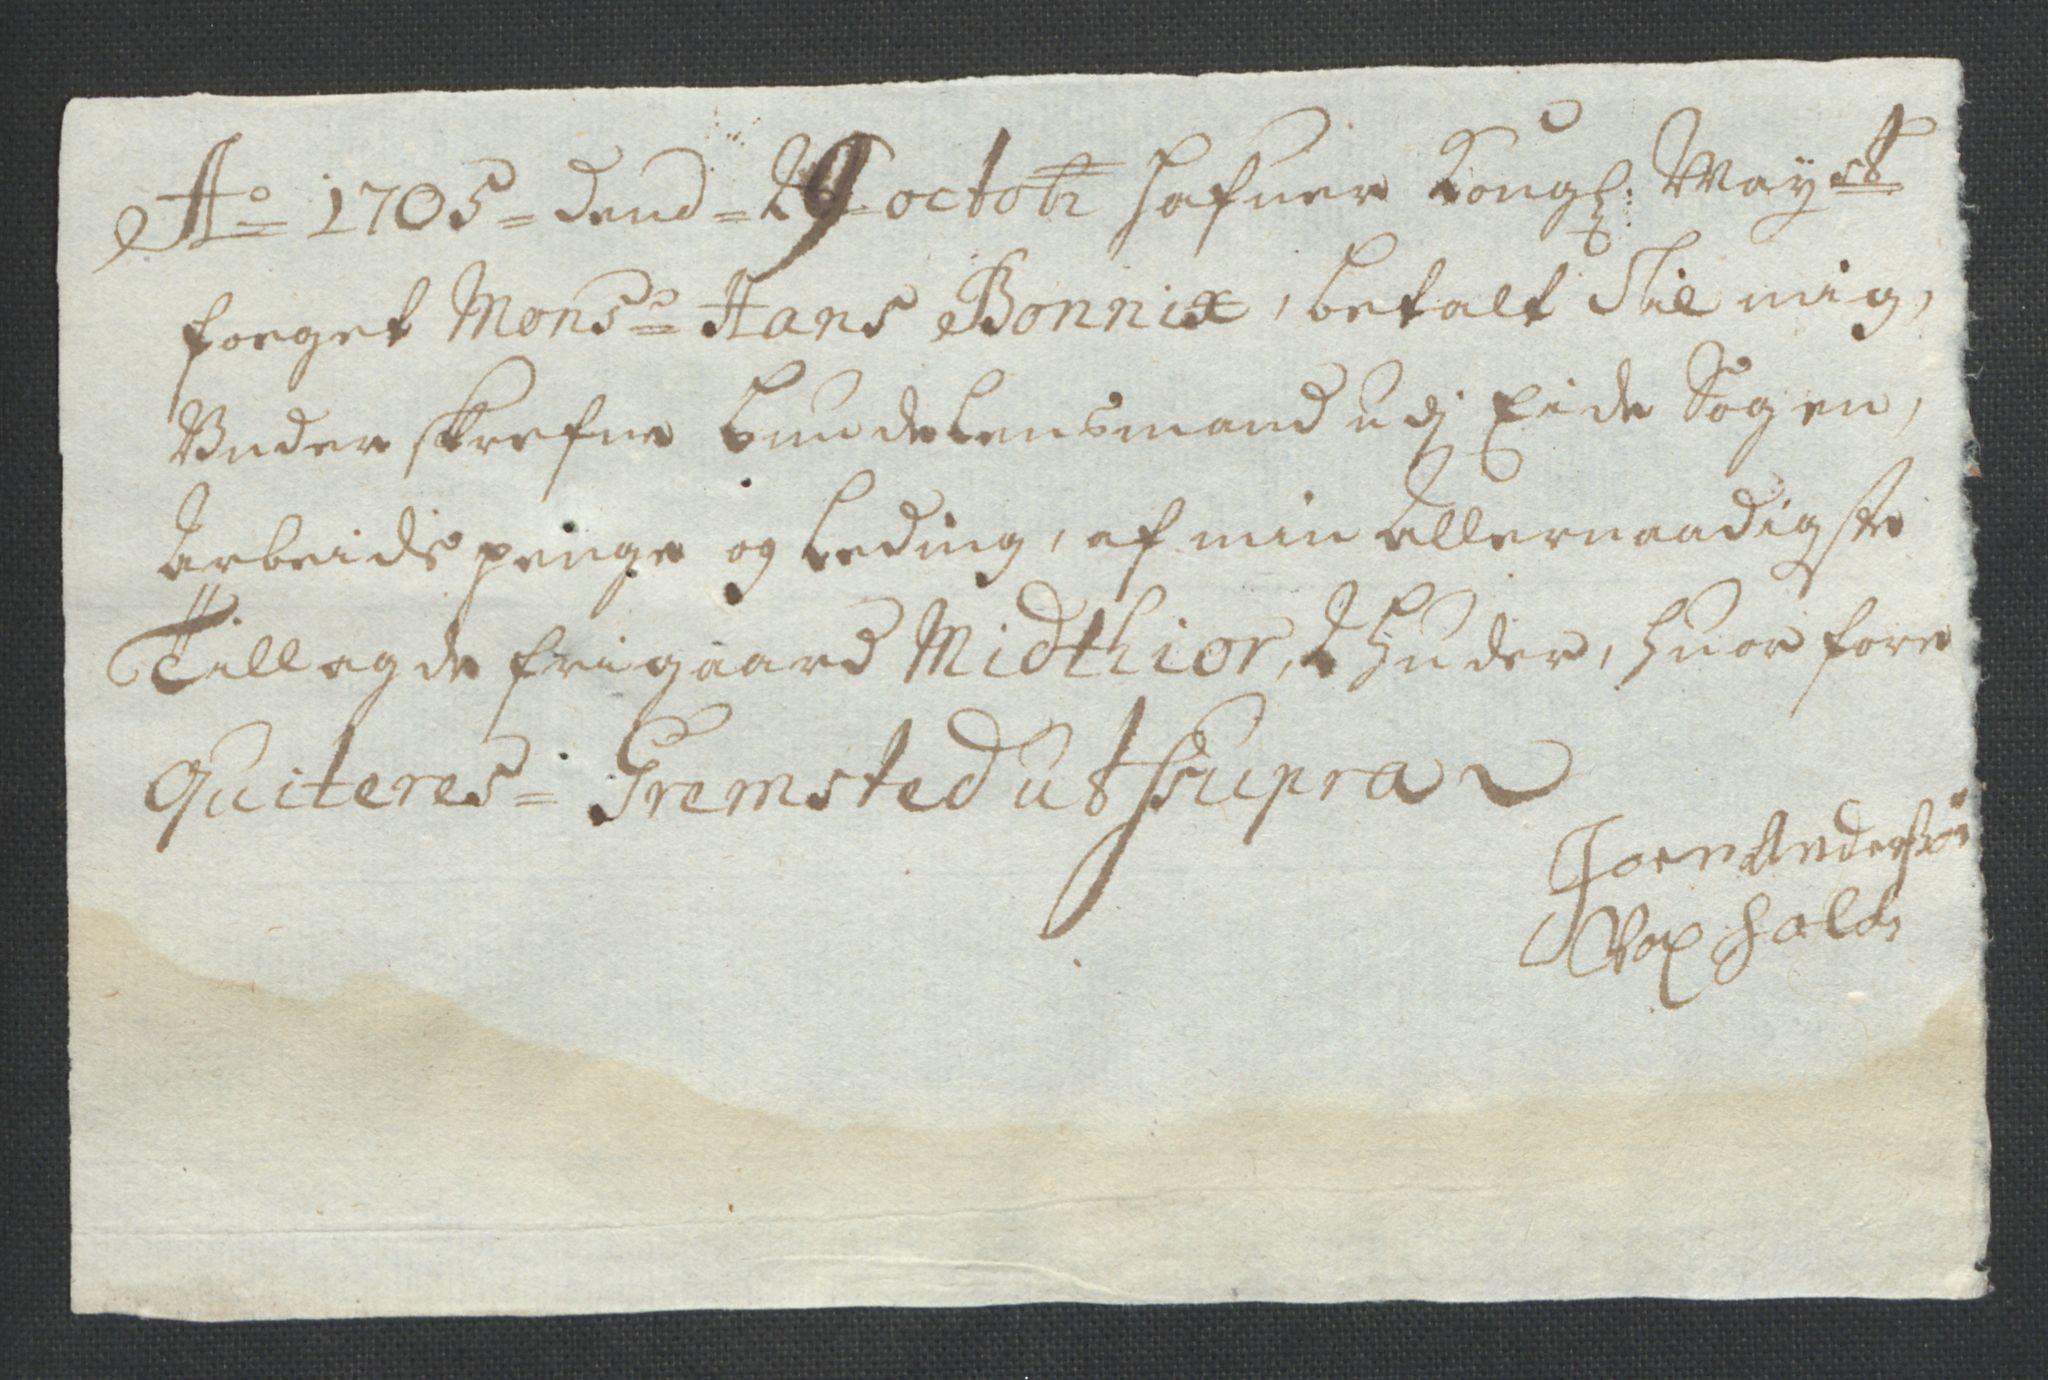 Ao 1705 = dend = 29 octobr hafuer Kongl: Mayest
foeget Monsr = Hans Bonnix, betalt Til mig,
Vnderskrefne bundelensmand udj Eide Sogen,
Arbeids penge og Leding, af min allernaadigste
Tillagde frigaard Midthior, 2 huder, huorfore
Quiteres = Gremsted ut Supra
Joen Andersøn
Voxhold